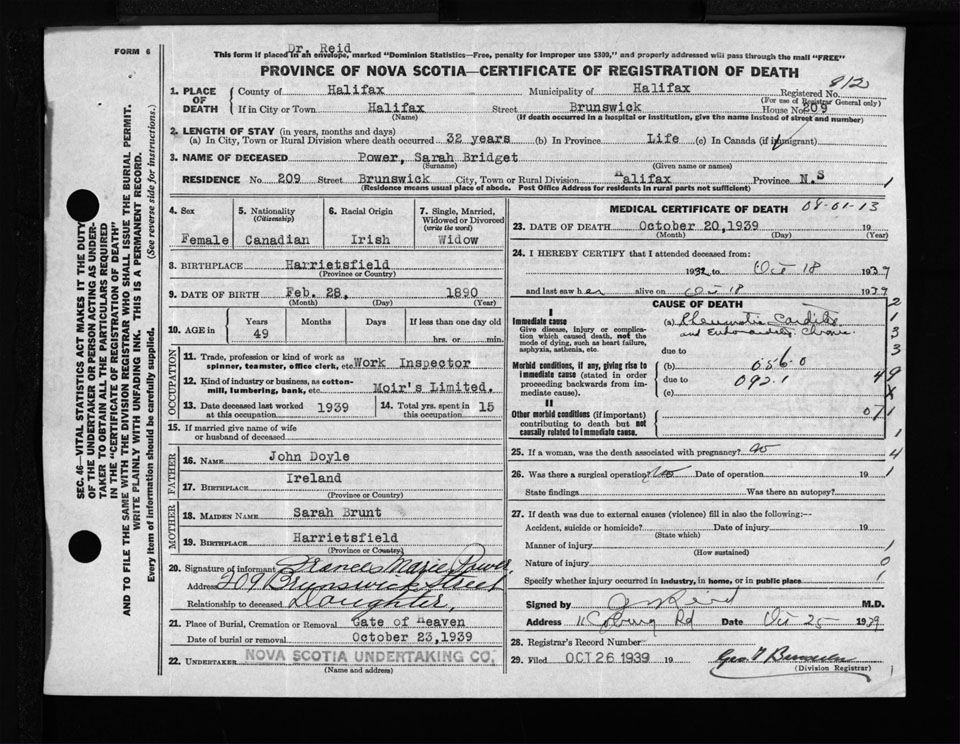 FORM 6
Dr. Reid
This form if placed in an envelope, marked "Dominion Statistics—Free, penalty for improper use $300," and properly addressed will pass through the mail "FREE"
PROVINCE OF NOVA SCOTIA—CERTIFICATE OF REGISTRATION OF DEATH
812
1. PLACE OF DEATH
County of Halifax Municipality of Halifax Registered No.
(For use of Registrar General only)
If in City or Town Halifax Street Brunswick House No. 209
(Name) (If death occurred in a hospital or institution, give the name instead of street and number)
2. LENGTH OF STAY (in years, months and days)
(a) In City, Town or Rural Division where death occurred 32 years (b) In Province Life (c) In Canada (if immigrant)
3. NAME OF DECEASED Power, Sarah Bridget
(Surname) (Given name or names)
RESIDENCE No. 209 Street Brunswick City, Town or Rural Division Halifax Province N.S
(Residence means usual place of abode. Post Office Address for residents in rural parts not sufficient)
1
4. Sex
Female
5. Nationality
(Citizenship)
Canadian
6. Racial Origin
Irish
7. Single, Married,
Widowed or Divorced
(write the word)
Widow
8. BIRTHPLACE Harrietsfield
(Province or Country)
9. DATE OF BIRTH Feb. 28, 1890
(Month) (Day) (Year)
10. AGE in
Years Months Days If less than one day old
49 hrs. or min.
OCCUPATION
11. Trade, profession or kind of work as
spinner, teamster, office clerk, etc. Work Inspector
12. Kind of industry or business, as cotton-
mill, lumbering, bank, etc. Moir's Limited.
13. Date deceased last worked
at this occupation 1939
14. Total yrs. spent in
this occupation 15
15. If married give name of wife
or husband of deceased
FATHER
16. NAME John Doyle
17. BIRTHPLACE Ireland
(Province or Country)
MOTHER
18. MAIDEN NAME Sarah Brunt
19. BIRTHPLACE Harrietsfield
(Province or Country)
20. Signature of informant Frances Marie Power.
Address 209 Brunswick Street
Relationship to deceased Daughter.
21. Place of Burial, Cremation or Removal Gate of Heaven
Date of burial or removal October 23,1939
22. UNDERTAKER NOVA SCOTIA UNDERTAKING CO.
(Name and address)
MEDICAL CERTIFICATE OF DEATH 08-01-13
23. DATE OF DEATH October 20,1939 19
(Month) (Day) (Year)
24. I HEREBY CERTIFY that I attended deceased from:
1932 to Oct 18 1939
and last saw her alive on Oct 18 1939
CAUSE OF DEATH
I
Immediate cause
Give disease, injury or complica-
tion which caused death, not the
mode of dying, such as heart failure,
asphyxia, asthenia, etc.
(a) Rheumatic Carditis
and Endocarditis Chronic
due to
Morbid conditions, if any, giving rise to
immediate cause (stated in order
proceeding backwards from im-
mediate cause).
(b) 056.0
due to 092.1
(c)
II
Other morbid conditions (if important)
contributing to death but not
causally related to immediate cause.
25. If a woman, was the death associated with pregnancy? no
26. Was there a surgical operation? no Date of operation 19
State findings Was there an autopsy?
27. If death was due to external causes (violence) fill in also the following:—
Accident, suicide or homicide? Date of injury 19
(State which)
Manner of injury
(How sustained)
Nature of injury
Specify whether injury occurred in industry, in home, or in public place
Signed by Reid M.D.
Address 11 Coburg Rd Date Oct 25 1939
28. Registrar's Record Number
29. Filed OCT 26 1939 19
(Division Registrar)
SEC. 46—VITAL STATISTICS ACT MAKES IT THE DUTY
OF THE UNDERTAKER OR PERSON ACTING AS UNDER-
TAKER TO OBTAIN ALL THE PARTICULARS REQUIRED
IN THE "CERTIFICATE OF REGISTRATION OF DEATH"
AND TO FILE THE SAME WITH THE DIVISION REGISTRAR WHO SHALL ISSUE THE BURIAL PERMIT.
WRITE PLAINLY WITH UNFADING INK. THIS IS A PERMANENT RECORD.
Every item of information should be carefully supplied. (See reverse side for instructions.)